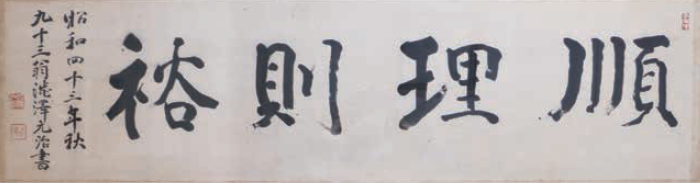 順理則裕
昭和四十三年秋
九十三翁渋澤元治書